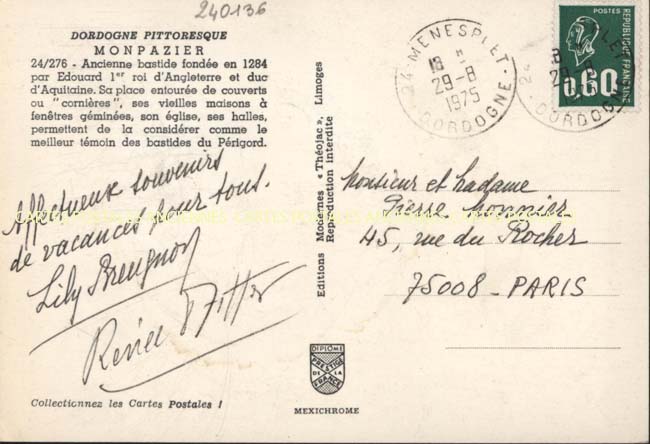 240136
DORDOGNE PITTORESQUE
MONPAZIER
24/276 - Ancienne bastide fondée en 1284
par Edouard 1er roi d'Angleterre et duc
d'Aquitaine. Sa place entourée de couverts
ou "cornières", ses vieilles maisons à
fenêtres géminées, son église, ses halles,
permettent de la considérer comme le
meilleur témoin des bastides du Périgord.
Affectueux souvenirs
de vacances pour tous.
Lily
Renée
Collectionnez les Cartes Postales !
Editions Modernes « Théojac », Limoges
Reproduction interdite
DIPLOME
PRESTIGE
DE LA
FRANCE
MEXICHROME
24 MENESPLET
18 H
29-8
1975
DORDOGNE
POSTES
REPUBLIQUE FRANÇAISE
0,60
Monsieur et Madame
Pierre Monnier
45, rue du Rocher
75008 - PARIS